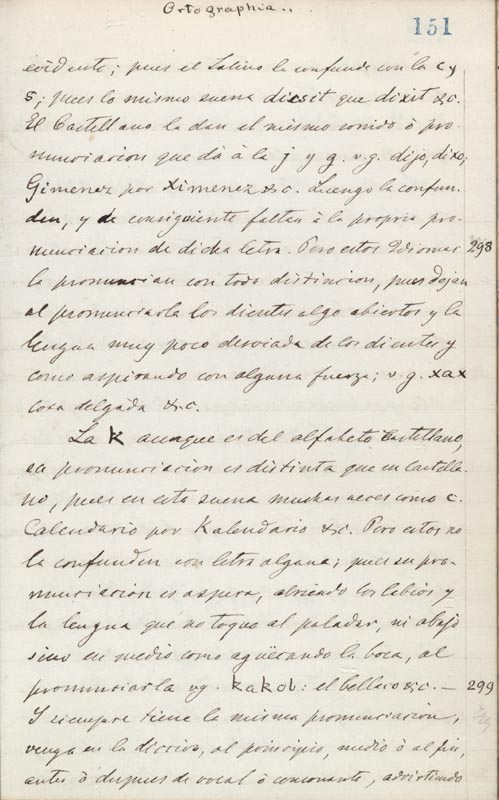 Ortographia..
151
evidente; pues el Latino la confunde con la c y
s; pues lo mismo suena dicsit que dixit &c.
El Castellano la dan el mismo sonido ò pro-
nunciacion que dà à la j y g. v.g. dijo, dixo;
Gimenez por Ximenez &c. Luengo la confun-
den, y de consiguiente faltan à la propria pro-
nunciacion de dicha letra. Pero estos Ydiomas
298
la pronuncian con toda distincion, pues dejan
al pronunciarla los dientes algo abiertos y la
lengua muy poco desviada de los dientes y
como aspirando con alguna fuerza; v.g. xax
cosa delgada &c.
La k aunque es del alfabeto Castellano,
su pronunciacion es distinta que en Castella-
no, pues en esta suena muchas veces como c.
Calendario por Kalendario &c. Pero estos no
la confunden con letra alguna; pues su pro-
nunciacion es aspera, abriendo los labios y
la lengua que no toque al paladar, ni abajo
sino en medio como agüecando la boca, al
pronunciarla vg. kakob: el bellaco &c. —
299
Y siempre tiene la misma pronunciacion,
venga en la diccion, al principio, medio ò al fin,
antes ò despues de vocal ò consonante, advirtiendo